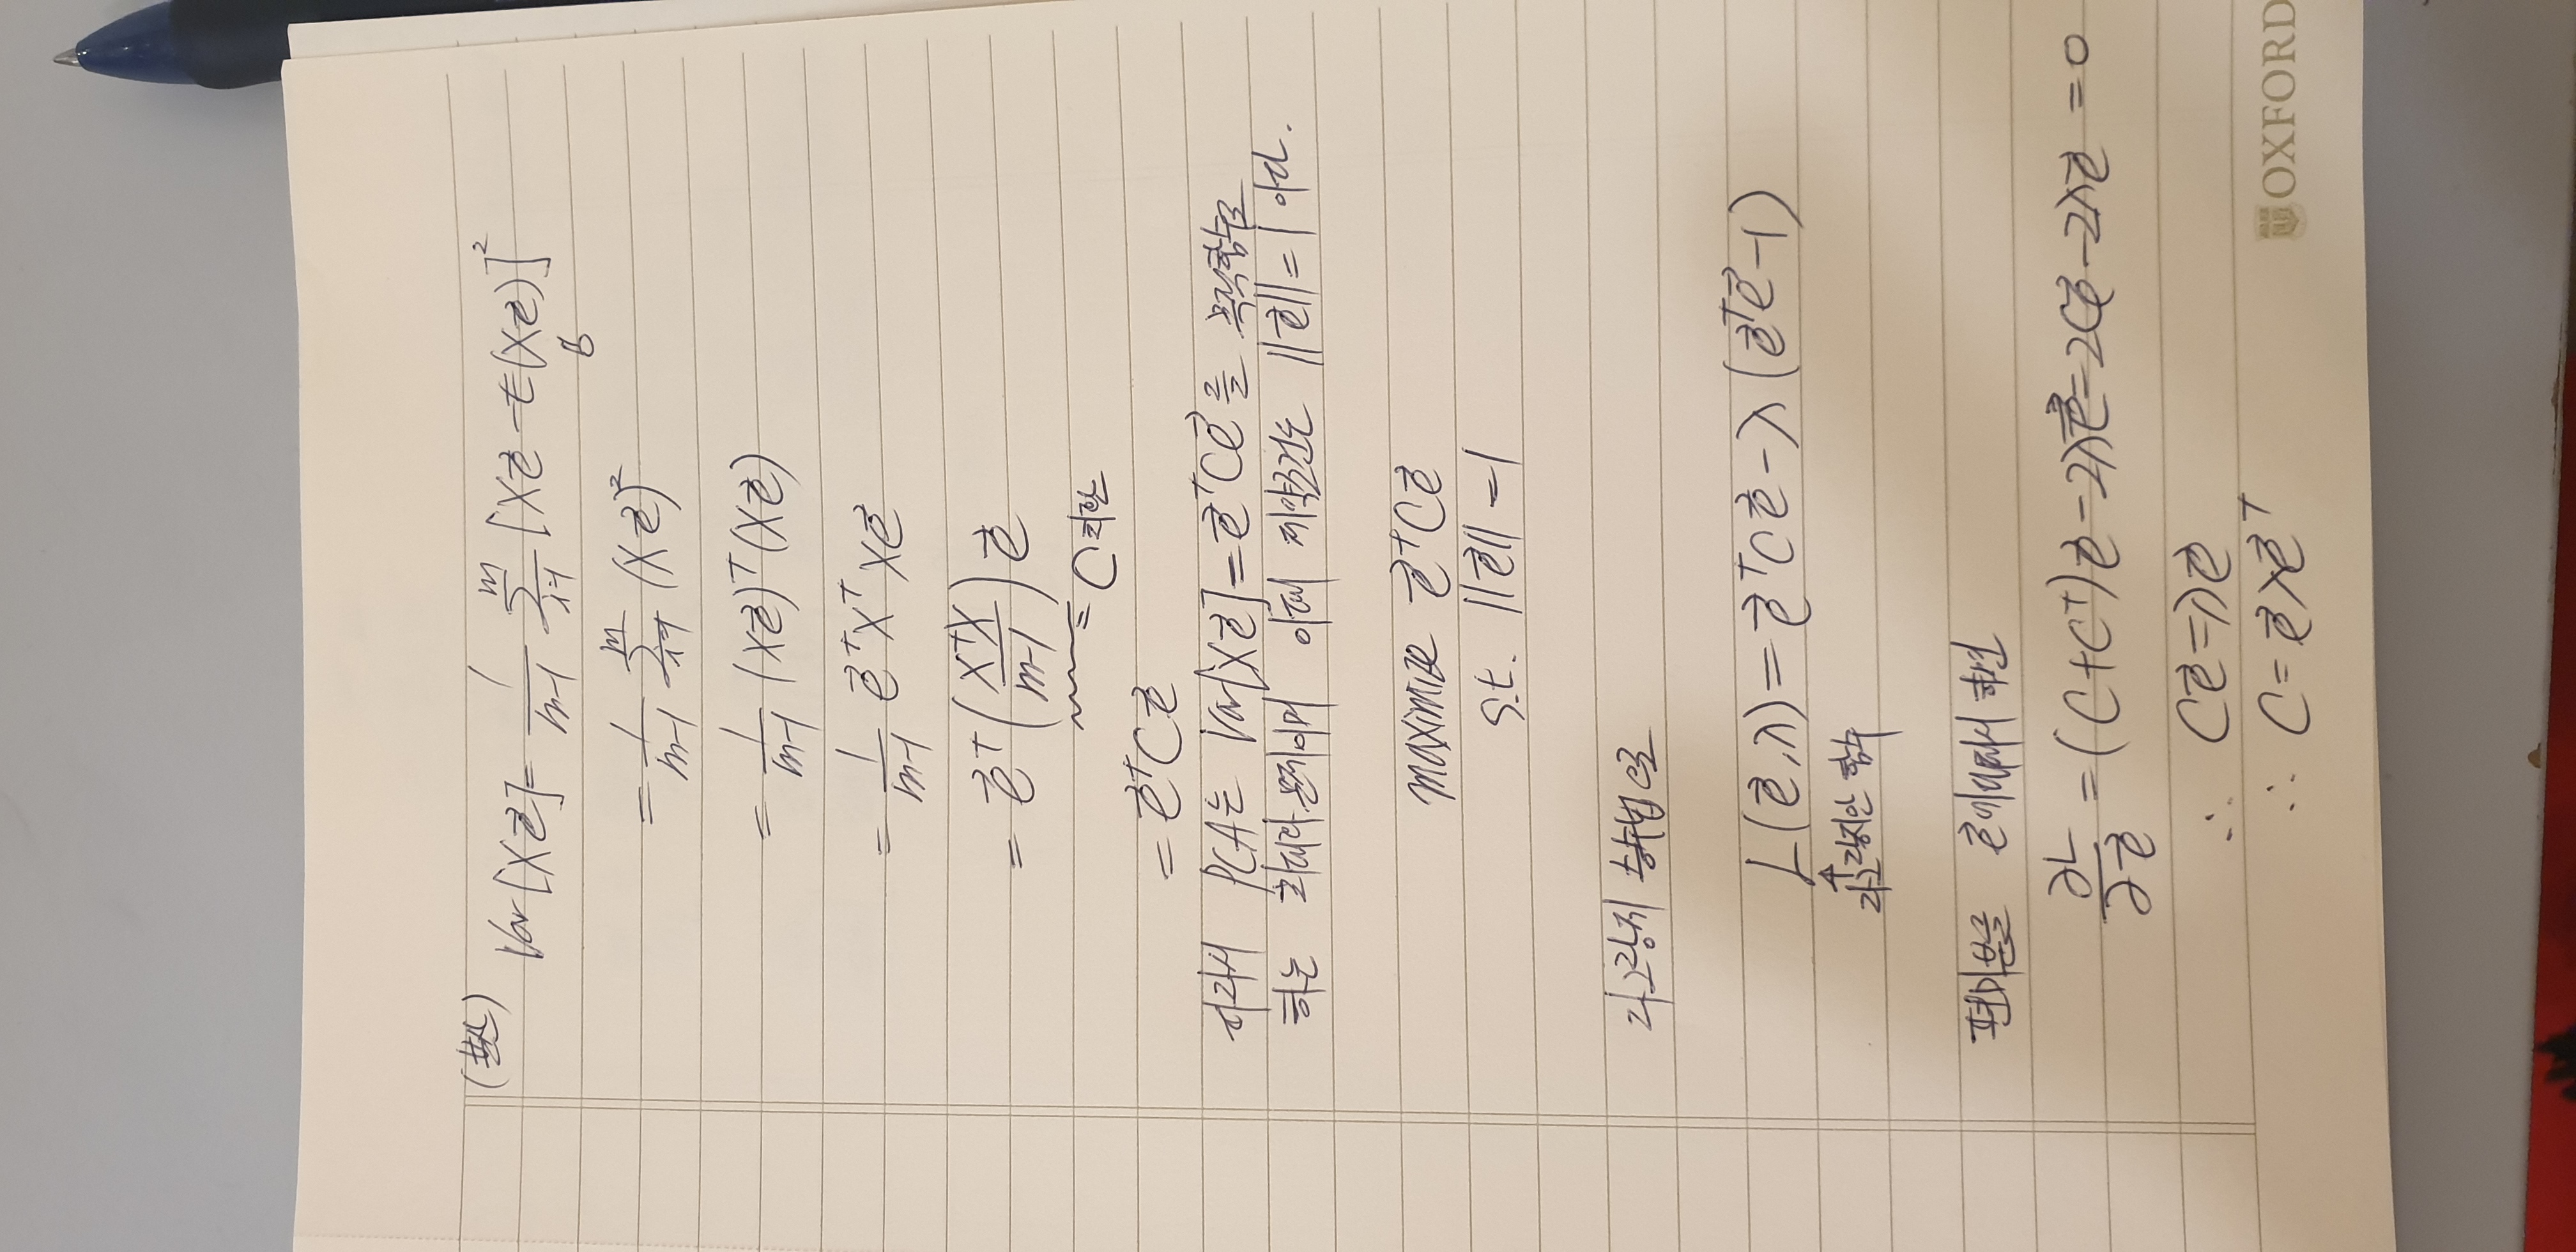 (분산) Var[Xe⃗] = 1/(m-1) Σ_{i=1}^{m} [Xe⃗ - E(Xe⃗)]²
0
= 1/(m-1) Σ_{i=1}^{m} (Xe⃗)²
= 1/(m-1) (Xe⃗)ᵀ(Xe⃗)
= 1/(m-1) e⃗ᵀXᵀXe⃗
= e⃗ᵀ(XᵀX/(m-1))e⃗
= C 치환
= e⃗ᵀCe⃗
따라서 PCA는 Var[Xe⃗] = e⃗ᵀCe⃗를 목적함수로
하는 최대화 문제이며 이때 제약조건는 ||e⃗|| = 1 이다.
maximize e⃗ᵀCe⃗
s.t. ||e⃗|| = 1
라그랑지 승수법으로
L(e⃗, λ) = e⃗ᵀCe⃗ - λ(e⃗ᵀe⃗ - 1)
↑
라그랑지안 함수
편미분을 e⃗에 대해서 하면
∂L/∂e⃗ = (C + Cᵀ)e⃗ - 2λe⃗ = 2Ce⃗ - 2λe⃗ = 0
∴ Ce⃗ = λe⃗
∴ C = e⃗λe⃗ᵀ
OXFORD